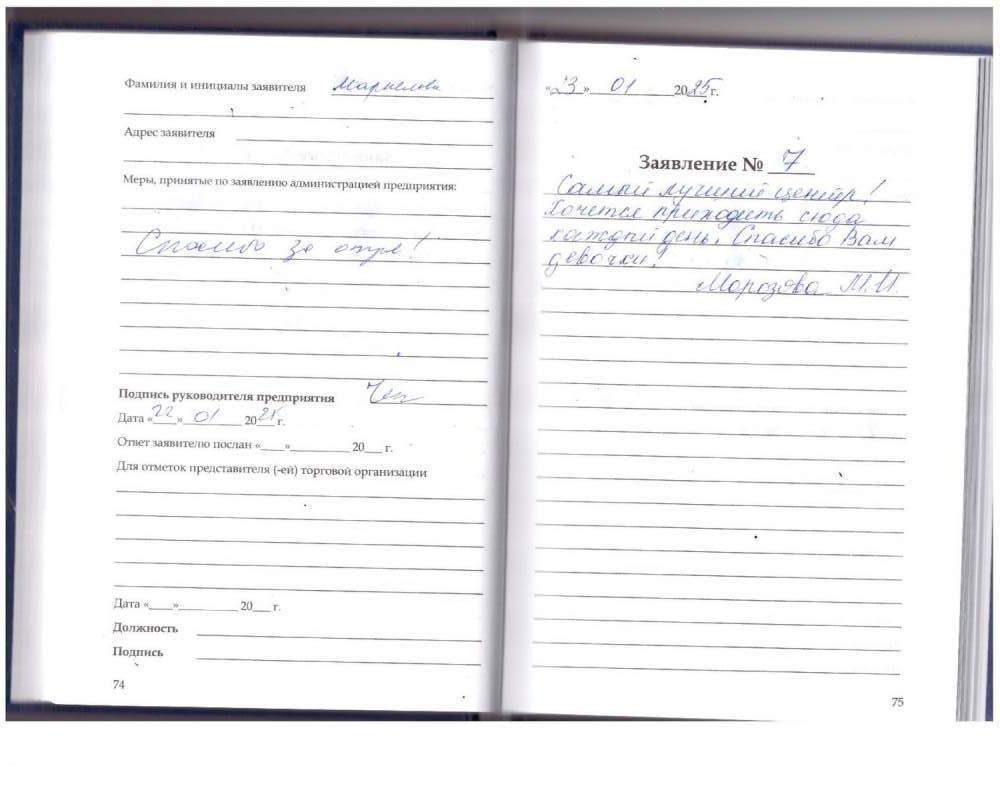 Фамилия и инициалы заявителя Маркелова
Адрес заявителя
Меры, принятые по заявлению администрацией предприятия:
Спасибо за отзыв!
Подпись руководителя предприятия
Дата «22» 01 2025 г.
Ответ заявителю послан «___»__________ 20___ г.
Для отметок представителя (-ей) торговой организации
Дата «____»__________ 20___ г.
Должность
Подпись
74
«23» 01 2025г.
Заявление № 7
Самый лучший центр!
Хочется приходить сюда
каждый день. Спасибо Вам
девочки!
Морозова М.И.
75